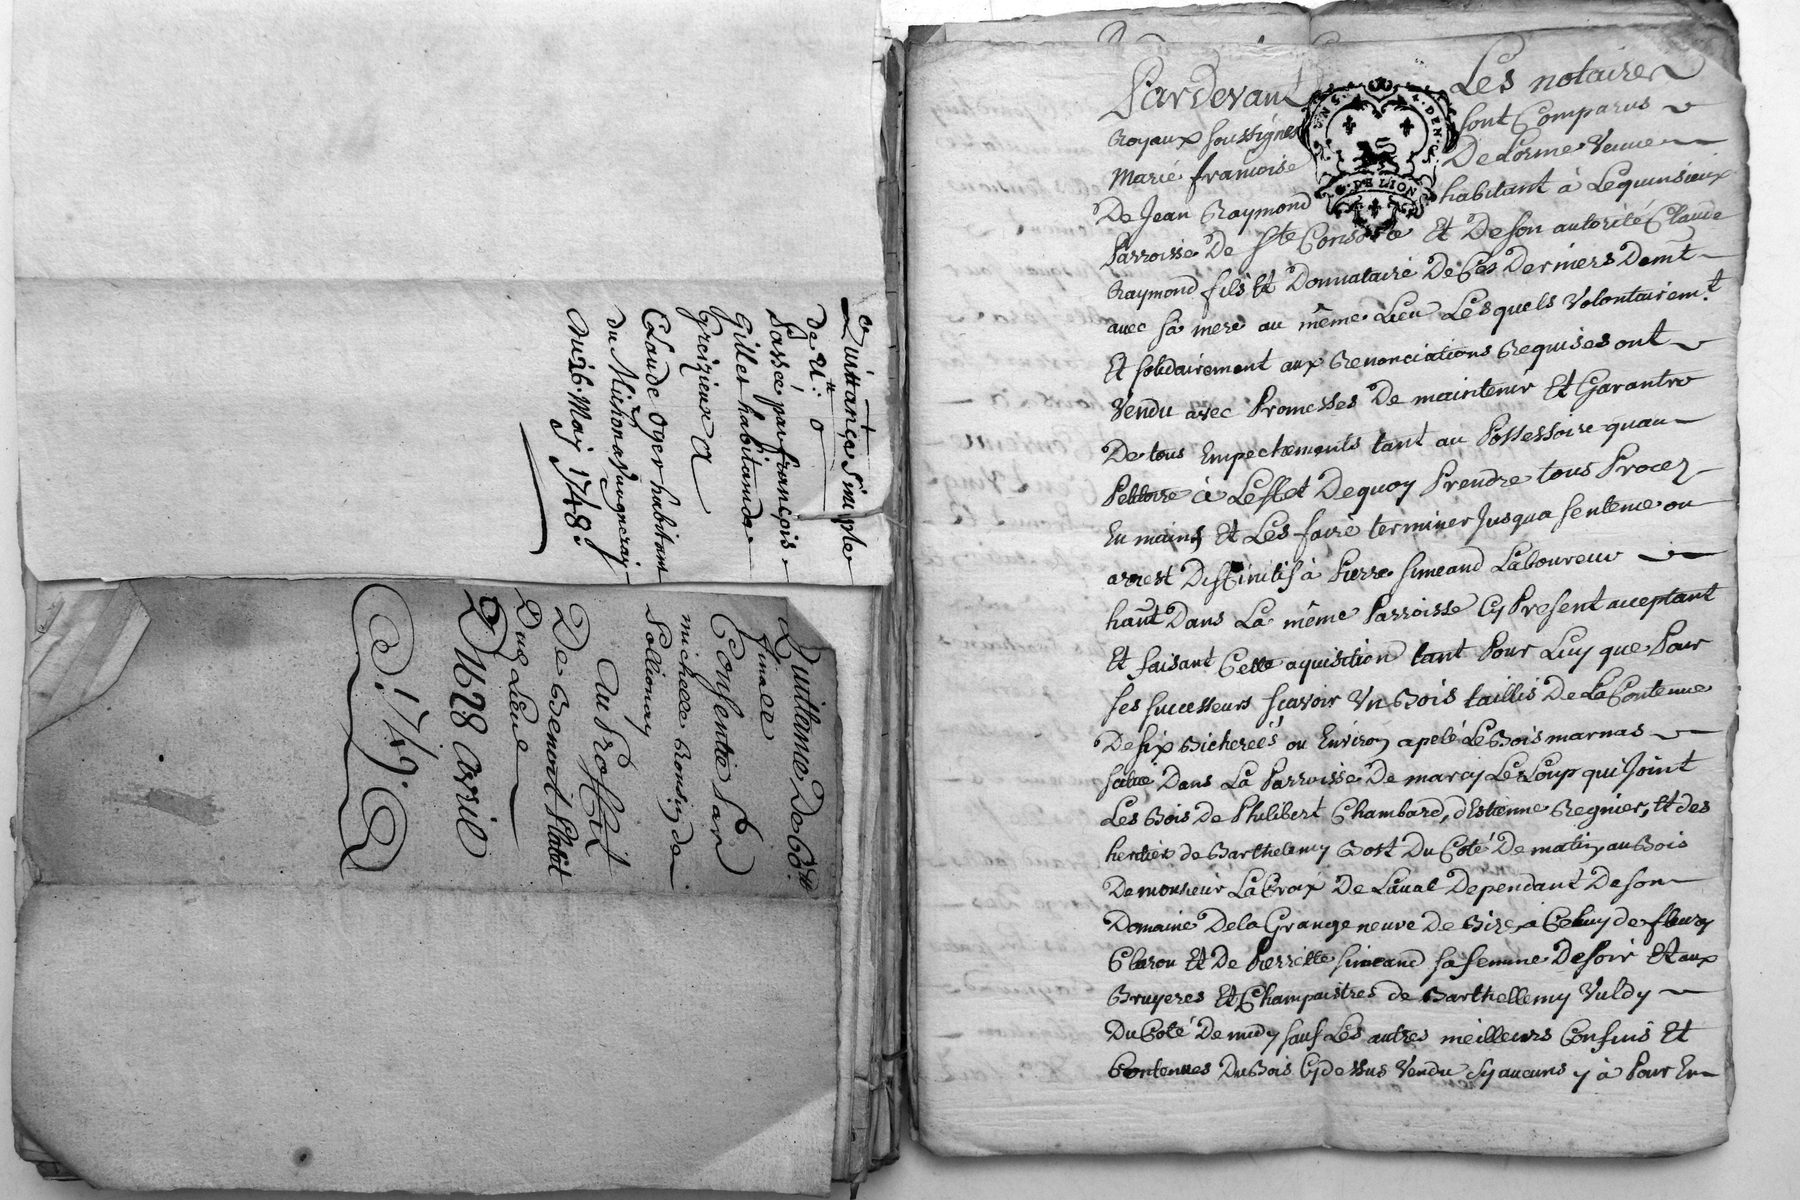 Quittance Simple
de 21: ₶ 0
Passée par françois
Gillet habitant de
Greizieux A
Claude Oger habitant
du Michon a Vaugneray
Du 26. May 1748
Quittance De 60 ₶
finale
Consentie Par
michelle Bonsin de
Pollionay
Au Proffit
De Benoit Habit
Dud Lieu
Du 28 avril
1749.
Pardevant Les notaires
Royaux soussignes sont Comparus
Marie francoise Delorme Veuve
De Jean Raymond habitant à Lequinsieux
Parroisse De Ste Consorce Et De son autorité Claude
Raymond fils Et Donnataire De Ces Derniers Demt
avec sa mere au même Lieu Lesquels Volontairemt.
Et solidairement aux Renonciations Requises ont
Vendu avec Promesses De maintenir Et Garantir
De tous Empechements tant au Possessoire quau
Petitoire à Leffet Dequoy Prendre tous Procez
En mains Et Les faire terminer Jusqua sentence ou
arrest Diffinitif à Pierre simeand Laboureur
hant Dans La même Parroisse Cy Present acceptant
Et faisant Cette aquisition tant Pour Luy que Pour
ses successeurs scavoir Un Bois taillis De La Contenue
De six Bicherées ou Environ apelé Le Bois marnas
scitué Dans La Parroisse De marcy Le Loup qui Joint
Les Bois De Philibert Chambard, d'Estienne Regnier, Et des
heritiers de Barthelemy Bost Du Coté De matin, au Bois
De monsieur La Croix De Laval Dependant De son
Domaine De la Grange neuve De Bize, à Celuy de fleury
Claron Et De Pierrette simeand sa femme De soir Et aux
Bruyeres Et Champaistres de Barthellemy Vuldy
Du Coté De midy sauf Les autres meilleurs Confins Et
Contenues Du Bois Cy dessus Vendu sy aucuns y à Pour En